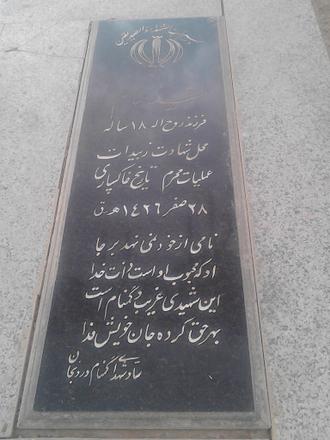 بسم رب الشهداء و الصدیقین
شهید
فرزند روح ا... ۱۸ ساله
محل شهادت زبیدات
عملیات محرم تاریخ خاکسپاری
۲۸ صفر ۱۴۲۶ ه‍ ق
نامی از خود نمی نهد بر جا
او که محبوب او است ذات خدا
این شهیدی غریب و گمنام است
بهر حق کرده جان خویش فدا
شهدای گمنام